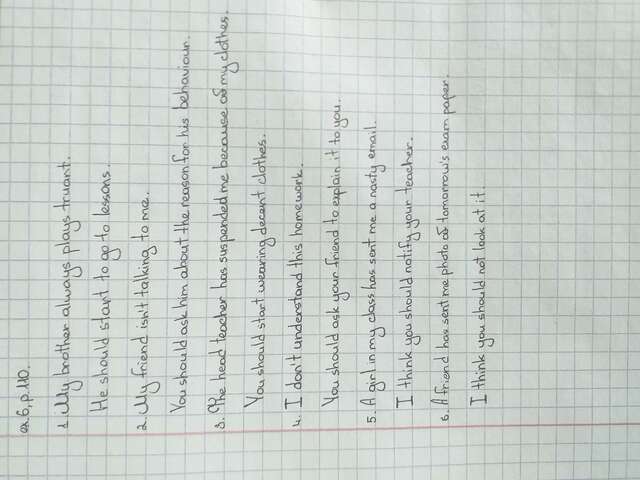 ex 6, p. 110.
1. My brother always plays truant.
He should start to go to lessons.
2. My friend isn't talking to me.
You should ask him about the reason for his behaviour.
3. The head teacher has suspended me because of my clothes.
You should start wearing decent clothes.
4. I don't understand this homework.
You should ask your friend to explain it to you.
5. A girl in my class has sent me a nasty email.
I think you should notify your teacher.
6. A friend has sent me photo of tomorrow's exam paper.
I think you should not look at it